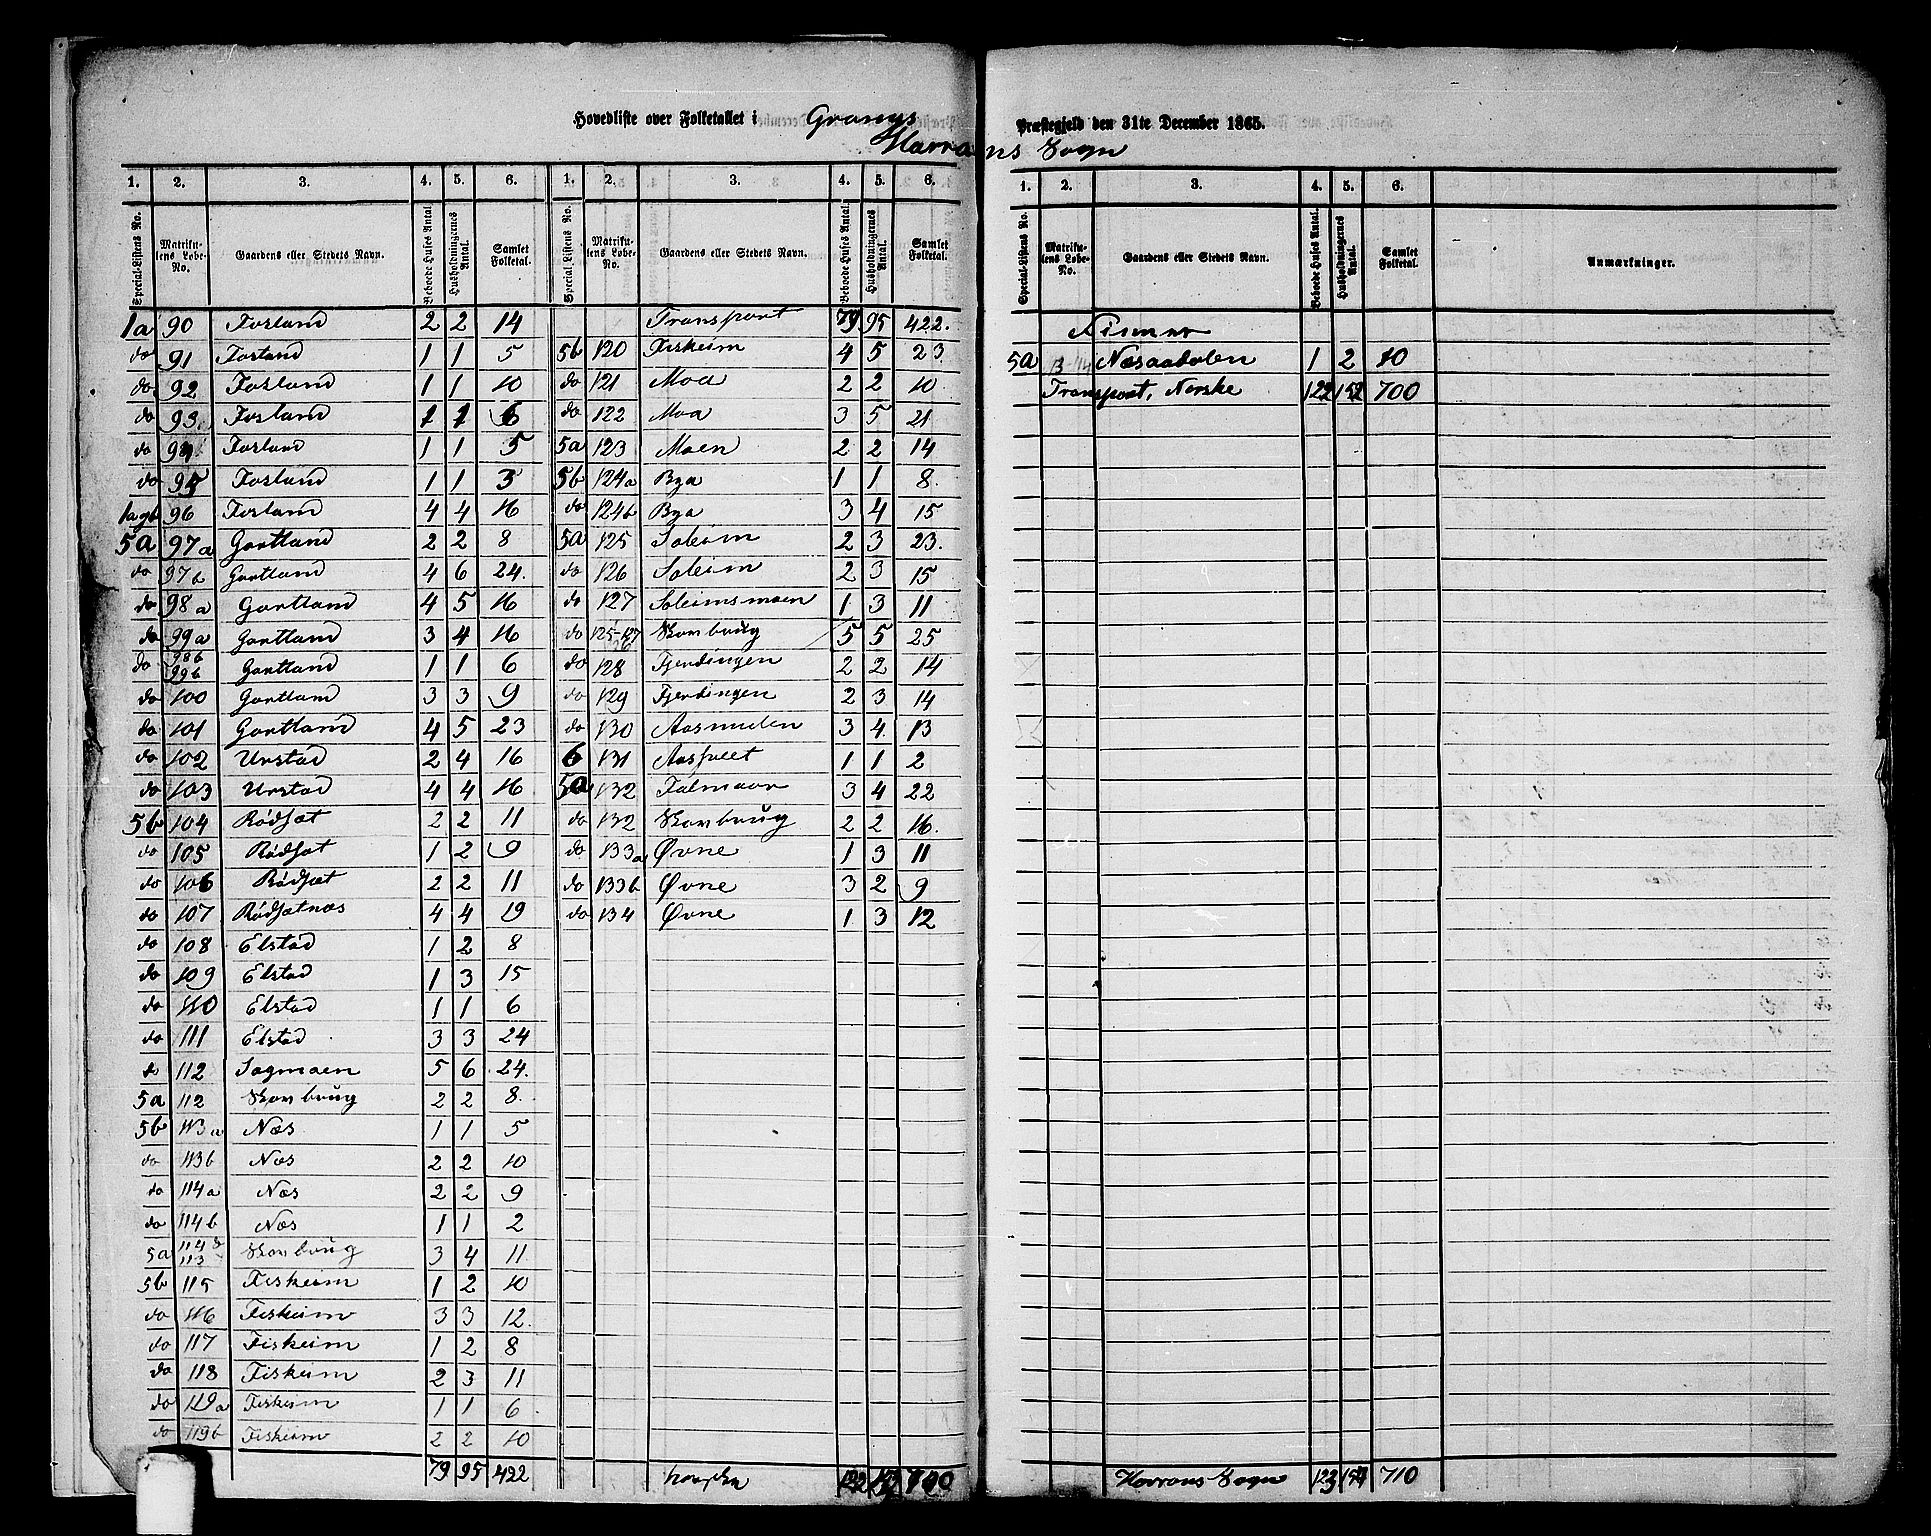 Hovedliste over Folketallet i Grongs Præstegjeld den 31te December 1865.
Harrans Sogn
1. 2. 3. 4. 5. 6. 1. 2. 3. 4. 5. 6.
Special-Listens No. Matrikulens Løbe-No. Gaardens eller Stedets Navn. Beboede Huses Antal. Husholdningernes Antal. Samlet Folketal. Special-Listens No. Matrikulens Løbe-No. Gaardens eller Stedets Navn. Beboede Huses Antal. Husholdningernes Antal. Samlet Folketal.
1a 90 Fosland 2 2 14
do 91 Fosland 1 1 5
do 92 Fosland 1 1 10
do 93 Fosland 1 1 6
do 94 Fosland 1 1 5
do 95 Fosland 1 1 3
1a & b 96 Fosland 4 4 16
5a 97a Gartland 2 2 8
do 97b Gartland 4 6 24.
do 98a Gartland 4 5 16
do 99a Gartland 3 4 16
do 98b 99b Gartland 1 1 6
do 100 Gartland 3 3 9
do 101 Gartland 4 5 23
do 102 Urstad 2 4 16
do 103 Urstad 4 4 16
5b 104 Rødsæt 2 2 11
do 105 Rødsæt 1 2 9
do 106 Rødsæt 2 2 11
do 107 Rødsætnæs 4 4 19
do 108 Elstad 1 2 8
do 109 Elstad 1 3 15
do 110 Elstad 1 1 6
do 111 Elstad 3 3 24
do 112 Sagmoen 5 6 24.
5a 112 Skovbrug 2 2 8.
5b 113a Næs 1 1 5
do 113b Næs 2 2 10
do 114a Næs 2 2 9
do 114b Næs 1 1 2
5a 114 & 113 Skovbrug 3 4 11
5b 115 Fiskeim 1 2 10
do 116 Fiskeim 3 3 12.
do 117 Fiskeim 1 2 8
do 118 Fiskeim 2 3 11
do 119a Fiskeim 1 1 6
do 119b Fiskeim 2 2 10
79 95 422
Transport 79 95 422.
5b 120 Fiskeim 4 5 23
do 121 Moa 2 2 10.
do 122 Moa 3 5 21
5a 123 Moen 2 2 14
5b 124a Bya 1 1 8.
do 124b Bya 3 4 15
5a 125 Soleim 2 3 23.
do 126 Soleim 2 3 15
do 127 Soleimsmoen 1 3 11
do 125-127 Skovbrug 5 5 25
do 128 Fjerdingen 2 2 14
do 129 Fjerdingen 2 3 14
do 130 Aasmulen 3 4. 13
6 131 1 1 2
5a 132 3 4 22
do 132 Skovbrug 2 2 16.
do 133a Øvne 1 3 11
do 133b Øvne 3 2 9
do 134 Øvne 1 3 12
122 152 700
1. 2. 3. 4. 5. 6.
Special-Listens No. Matrikulens Løbe-No. Gaardens eller Stedets Navn. Beboede Huses Antal. Husholdningernes Antal. Samlet Folketal. Anmærkninger.
5a Næsaadalen 1 2 10
Transport, Norske 122 152 700
Harrans Sogn 123 154 710